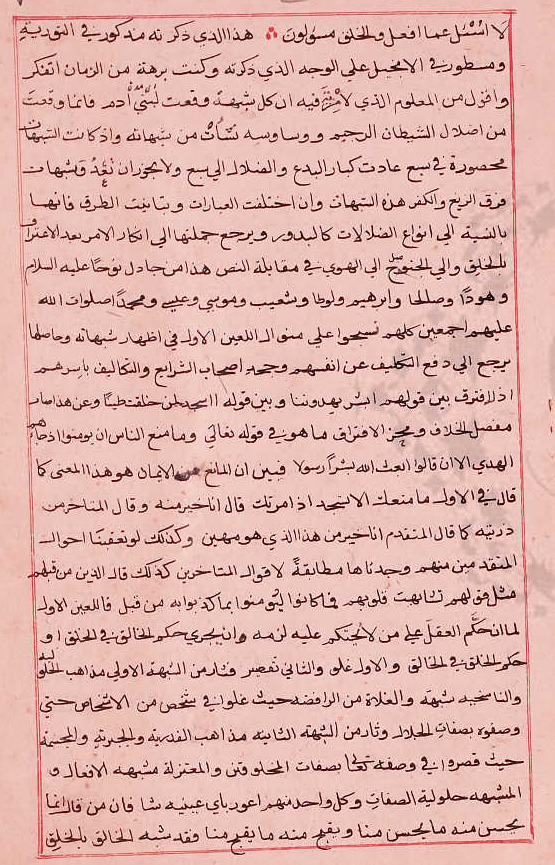 لا اسئل عما افعل والخلق مسؤلون هذا الذي ذكرته مذكور في التورية
ومسطور في الانجيل علي الوجه الذي ذكرته وكنت برهة من الزمان اتفكر
واقول من المعلوم الذي لا مرية فيه ان كل شبهة وقعت لبني آدم فانما وقعت
من اضلال الشيطان الرجيم ووساوسه نشات من شبهاته واذ كانت الشبهات
محصورة في سبع عادت كبار البدع والضلال الي سبع ولا يجوز ان تعد وشبهات
فرق الزيغ والكفر هذه الشبهات وان اختلفت العبارات وتباينت الطرق فانها
بالنسبة الي انواع الضلالات كالبذور ويرجع جملتها الي انكار الامر بعد الاعتراف
بالخلق والي الجنوح الي الهوي في مقابلة النص هذا من جادل نوحا عليه السلام
وهودا وصالحا وابرهيم ولوطا وشعيب وموسي وعيسي ومحمدا صلوات الله
عليهم اجمعين كلهم نسجوا علي منوال اللعين الاول في اظهار شبهاته وحاصلها
يرجع الي دفع التكليف عن انفسهم وجحد اصحاب الشرايع والتكاليف باسرهم
اذ لا فرق بين قولهم ابشر يهدوننا وبين قوله ااسجد لمن خلقت طينا وعن هذا صار
مفصل الخلاف ومحز الافتراق ما هو في قوله تعالي وما منع الناس ان يومنوا اذ جاءهم
الهدي الا ان قالوا ابعث الله بشرا رسولا فبين ان المانع من الايمان هو هذا المعني كما
قال في الاول ما منعك الا تسجد اذ امرتك قال انا خير منه وقال المتاخر من
ذريته كما قال المتقدم انا خير من هذا الذي هو مهين وكذلك لو تعقبنا احوال
المتقدمين منهم وجدناها مطابقة لاقوال المتاخرين كذلك قال الذين من قبلهم
مثل قولهم تشابهت قلوبهم فما كانوا ليومنوا بما كذبوا به من قبل فاللعين الاول
لما ان حكم العقل علي من لا يحتكم عليه لزمه وان يجري حكم الخالق في الخلق او
حكم الخلق في الخالق والاول غلو والثاني تقصير فثار من الشبهة الاولي مذاهب الحلولية
والتناسخية شبهة والغلاة من الرافضة حيث غلوا في شخص من الاشخاص حتي
وصفوه بصفات الجلال وثار من الشبهة الثانية مذاهب القدرية والجبرية والمجسمة
حيث قصروا في وصفه تعالي بصفات المخلوقين والمعتزلة مشبهه الافعال و
المشبهه حلولية الصفات وكل واحد منهم اعور باي عينيه شا فان من قال انما
يحسن منه ما يحسن منا ويقبح منه ما يقبح منا فقد شبه الخالق بالخلق